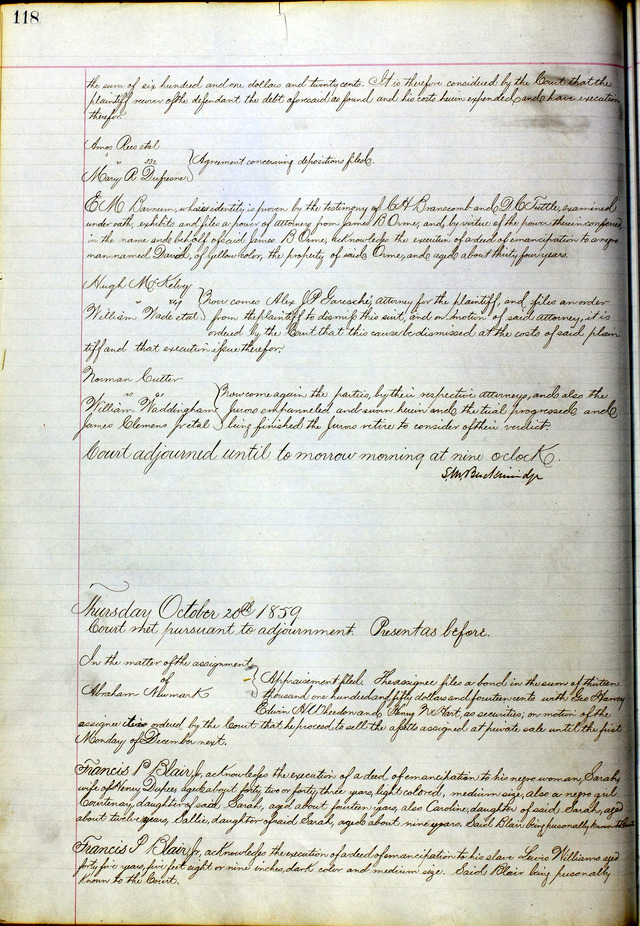 118
the sum of six hundred and one dollars and twenty cents. It is therefore considered by the Court that the
plaintiff recover of the defendant the debt aforesaid as found and his costs herein expended, and have execution
therefor.
Amos Rees et al
Mary R Dufresne } Agreement concerning depositions filed.
E M Barnum, whose identity is proven by the testimony of C H Branscomb and D C Tuttle, examined
under oath, exhibits and files a power of attorney from James B Orme, and, by virtue of the power therein conferred,
in the name and behalf of said James B Orme, acknowledges the execution of a deed of emancipation to a negro
man named David, of yellow color, the property of said Orme, and aged about thirty four years.
Hugh McKelvy
" vs
William Wade et al } Now comes Alex J P Garesché, attorney for the plaintiff, and files an order
from the plaintiff to dismiss this suit, and on motion of said attorney, it is
ordered by the Court that this cause be dismissed at the costs of said plain
tiff and that execution issue therefor.
Norman Cutter
" vs
William Waddingham
James Clemens Jr et al } Now come again the parties, by their respective attorneys, and also the
Jurors empanneled and sworn herein and the trial progressed and
being finished the Jurors retire to consider of their verdict.
Court adjourned until to morrow morning at nine oclock.
Thursday October 20th 1859
Court met pursuant to adjournment. Present as before.
In the matter of the assignment
of
Abraham Newmark } Appraisement filed. The assignee files a bond in the sum of thirteen
thousand one hundred and fifty dollars and fourteen cents with Geo
Edwin and Henry N Hart, as securities; on motion of the
assignee it is ordered by the Court that he proceed to sell the assets assigned at private sale until the first
Monday of December next.
Francis P Blair Jr, acknowledges the execution of a deed of emancipation to his negro woman, Sarah,
wife of Henry Dupee, aged about forty two or forty three years, light colored, medium size, also a negro girl
Courtenay, daughter of said Sarah, aged about fourteen years, also Caroline, daughter of said Sarah, aged
about twelve years, Sallie, daughter of said Sarah, aged about nine years. Said Blair being personally known to the Court
Francis P Blair Jr, acknowledges the execution of a deed of emancipation to his slave Lewis Williams aged
forty five years, five feet eight or nine inches, dark color and medium size. Said Blair being personally
known to the Court.